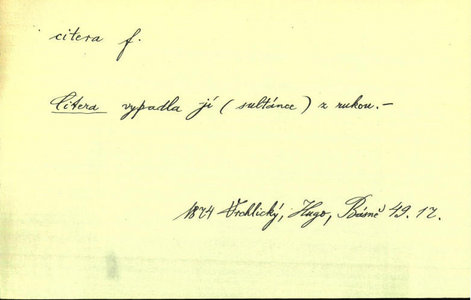 citera f.
Citera vypadla jí (sultánce) z rukou.–
1874 Vrchlický, Hugo, Básně 49. 17.